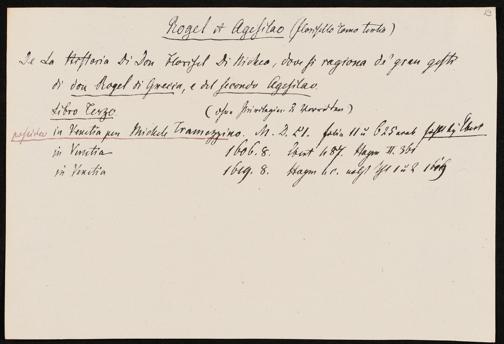 13
Rogel et Agesilao (Florisello tomo terzo)
De La Historia Di Don Florisel Di Nichea, dove si ragiona de' gran gesti
di don Rogel di Grecia, e del secondo Agesilao.
Libro Terzo. (
in Venetia per Michele Tramezzino. M. D. LI. folia 11 u 625 fehlt bey Ebert
in Venetia 1606. 8. Ebert 487. Hagen II. 361
in Venetia 1619. 8. Hagen l. c. 1 u 2 1619